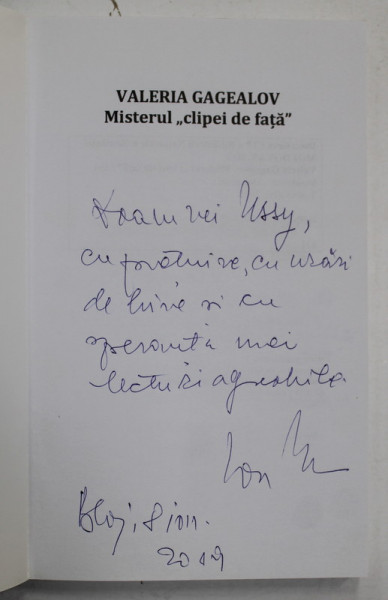 VALERIA GAGEALOV
Misterul „clipei de față”
Doamnei Ussy,
cu prețuire, cu urări
de bine și cu
speranța unei
lecturi agreabile
Ion
Blaj,
2019